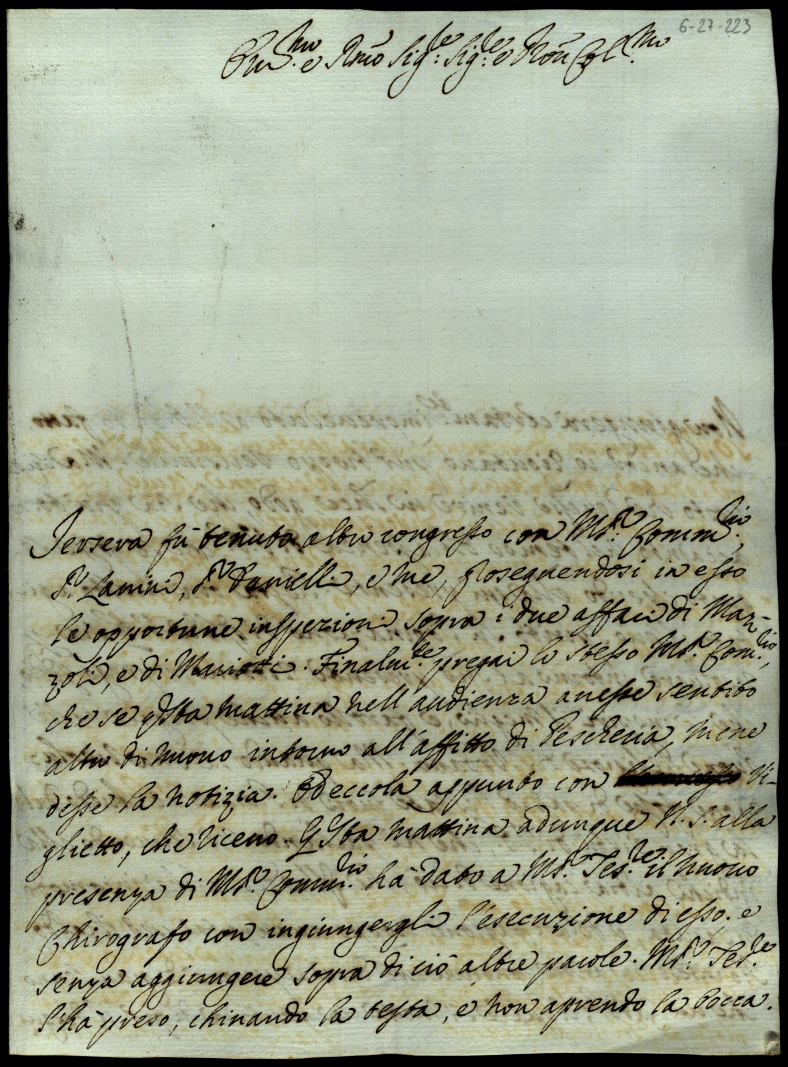 6-27-223
Em.mo e Rmo Sig.re Sig.re e Pron Col.mo
Jersera fù tenuto altro congresso con Mſ.r Comm.rio,
S.r Lanini, S.r Danielli, e me, proseguendosi in esso
le opportune inspezioni sopra i due affari di Mar-
zoli, e di Mariotti. Finalm.te pregai lo stesso Mſ.r Com.rio,
che se q̃sta mattina nell'audienza avesse sentito
altro di nuovo intorno all'affitto di Pescheria, me ne
desse la notizia. Ed eccola appunto con Vi-
glietto, che ricevo. Q̃sta mattina adunque N. S. alla
presenza di Mſ.r Comm.rio hà dato a Mſ.r Tes.re il nuovo
Chirografo con ingiungergli l'esecuzione di esso. e
senza aggiungere sopra di ciò altre parole. Mſ.r Tes.re
l'hà preso, chinando la testa, e non aprendo la bocca.